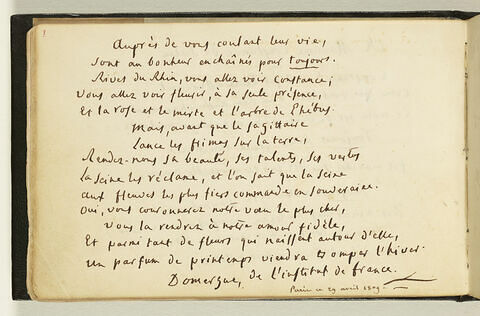 1
Auprès de vous coulant leur vie,
Sont au bonheur enchaînés pour toujours.
Rives du Rhin, vous allez voir Constance;
Vous allez voir fleurir, à sa seule présence,
Et la rose et le mirte et l'arbre de Phébus.
Mais, avant que le sagittaire
Lance les frimas sur la terre,
Rendez-nous sa beauté, ses talents, ses vertus
La Seine les réclame, et l'on sait que la Seine
aux fleuves les plus fiers commande en souveraine.
Oui, vous couronnerez notre vœu le plus cher,
vous la rendrez à notre amour fidèle,
Et parmi tant de fleurs qui naissent autour d'elle,
un parfum de printemps viendra tromper l'hiver.
Domergue, de l'institut de france.
Paris ce 29 avril 1809.